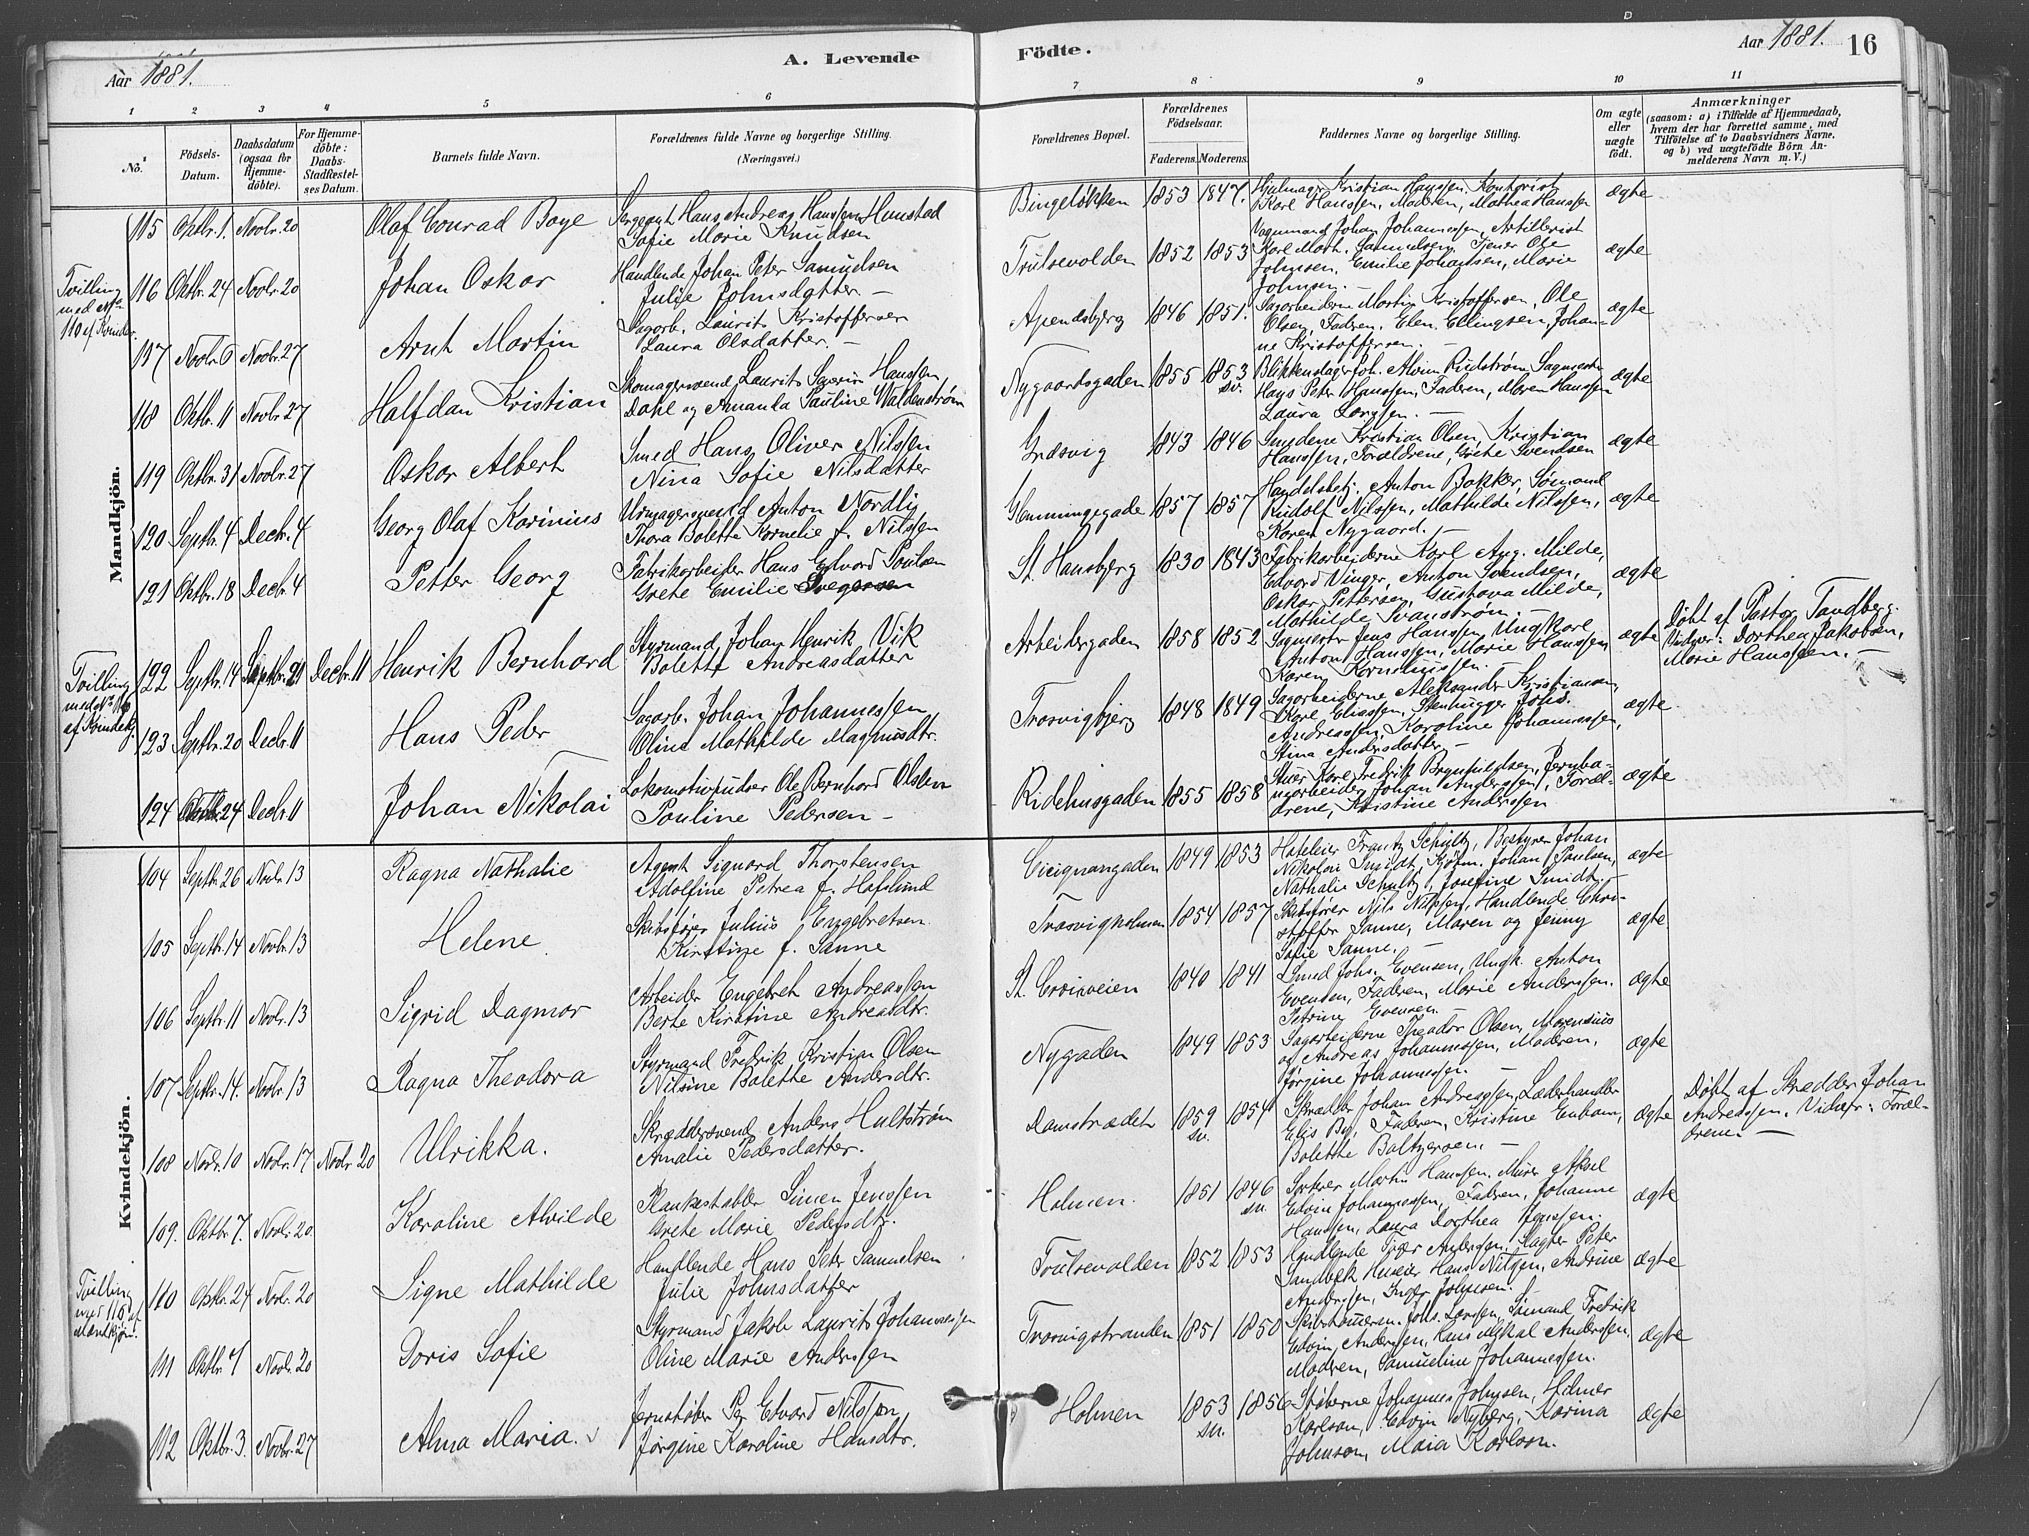 Aar 1881.
A. Levende
Födte.
Aar 1881.
16
1 2 3 4 5 6 7 8 9 10 11
No.
Födsels-Datum.
Daabsdatum (ogsaa for Hjemme-döbte).
For Hjemme-döbte: Daabs-Stadfæstel-ses Datum.
Barnets fulde Navn.
Forældrenes fulde Navne og borgerlige Stilling. (Næringsvei.)
Forældrenes Bopæl.
Forældrenes Födselsaar.
Faderens. Moderens.
Faddernes Navne og borgerlige Stilling.
Om ægte eller uægte födt.
Anmærkninger
(saasom: a) i Tilfælde af Hjemmedaab, hvem der har forrettet samme, med Tilföielse af to Daabsvidners Navne, og b) ved uægtefödte Börn An-melderens Navn m. V.)
Mandkjön.
115 Oktbr. 1. Novbr. 20 Olaf Conrad Boye
Hans Andreas Hanssen Hunstad
Sofie Marie Knudsen
Bingeløkken 1853 1847. Kristian Hanssen, Kontorist
Karl Hanssen, Moderen, Mathea Hanssen
ægte
Tvilling med No 110 af Kvindek.
116 Oktbr. 24 Novbr. 20 Johan Oskar
Handlende Johan Peter Samuelsen
Julie Johnsdatter —
Trulsevolden 1852 1853
Vognmand Johan Johannessen, Artillerist
Karl Math. Samuelsen, Tjener Ole
Johnsen, Emilie Johansen, Marie
Johnsen. —
ægte
117 Novbr. 6 Novbr. 27 Arnt Martin
Sagarb. Laurits Kristoffersen
Laura Olsdatter. —
Apendsbjerg 1846 1851.
Sagarbeiderne Martin Kristoffersen, Ole
Olsen, Faderen, Elen Ellingsen, Johan-
ne Kristoffersen. —
ægte
118 Oktbr. 11 Novbr. 27 Halfdan Kristian
Skomagersvend Laurits Severin Hanssen
Dahl og Amanda Pauline Waldenstrøm
Nygaardsgaden 1855 1853 sv.
Blikkenslager Joh. Alvin Rudstrøm, Sagmester
Hans Peter Hanssen, Faderen, Maren Hanssen
Laura Larssen. —
ægte
119 Oktbr. 31 Novbr. 27 Oskar Albert
Smed Hans Oliver Nilssen
Nina Sofie Nilsdatter
Græsvig 1843 1846
Smedene Kristian Olsen, Kristian
Hanssen, Forældrene, Grete Svendsen
ægte
120 Septbr. 4 Decbr. 4 Georg Olaf Karinius
Urmagersvend Anton Nordli
Thora Bolette Kornelie f. Nilssen
Gemmingsgade 1857 1857
Handelsbetj. Anton Bakker, Sømand
Rudolf Nilssen, Mathilde Nilssen,
Karen Nygaard. —
ægte
121 Oktbr. 18 Decbr. 4 Petter Georg
Fabrikarbeider Hans Edvard Poulsen
Grete Emilie
St. Hansbjerg 1830 1843
Fabrikarbeiderne Karl Aug. Milde,
Edvard Vinger, Anton Svendsen,
Oskar Pettersen, Gustava Milde,
Mathilde Svanstrøm. —
ægte
Tvilling med No 116 af Kvindekj.
122 Septbr. 14 Septbr. 21 Decbr. 11 Henrik Bernhard
Styrmand Johan Henrik Vik
Bolette Andreasdatter
Arbeidergaden 1858 1852
Sagmester Jens Hanssen, Ungkarl
Anton Hanssen, Marie Hanssen
Karen Korneliussen.
ægte
Døbt af Pastor Tandberg.
Vidner: Dorthea Jakobsen,
Marie Hanssen. —
123 Septbr. 20 Decbr. 11 Hans Peder
Sagarb. Johan Johannessen
Oline Mathilde Magnusdtr.
Trosvigbjerg 1848 1849
Sagarbeiderne Aleksander Kristiansen,
Karl Eliassen, Stenhugger Johs.
Andreassen, Karoline Johannessen,
Stina Andersdatter —
ægte
124 Oktbr. 24 Decbr. 11 Johan Nikolai
Lokomotivpudser Ole Bernhard Olsen
Pouline Pedersen —
Ridehusgaden 1855 1858
Karl Fredrik Brynhildsen, Jernba-
nearbeider Johan Anderssen, Foræl-
drene, Kristine Anderssen
ægte
Kvindekjön.
104 Septbr. 26 Novbr. 13 Ragna Nathalie
Agent Sigvard Thorstensen
Adolfine Petrea f. Hafslund
Cicignongaden 1849 1853
Hoteleier Frantz Schultz, Bestyrer Johan
Nikolai Smidt, Kjøbm. Johan Paulsen,
Nathalie Schultz, Josefine Smidt. —
ægte
105 Septbr. 14 Novbr. 13 Helene
Skibsfører Julius Engebretsen
Kirstine f. Sanne
Trosvigholmen 1854 1857
Skibsfører Nils Nilssen, Handlende Chri-
stoffer Sanne, Maren og Jenny
Sofie Sanne. —
ægte
106 Septbr. 11 Novbr. 13 Sigrid Dagmar
Arbeider Engebret Andreassen
Berte Kirstine Andreasdtr.
St. Croixveien 1840 1841
Smed Johs. Evensen, Ungk. Anton
Evensen, Faderen, Marie Anderssen.
Petrine Evensen. —
ægte
107 Septbr. 14. Novbr. 13 Ragna Theodora
Styrmand Fredrik Kristian Olsen
Nilsine Bolette Andersdtr.
Nygaden 1849 1853
Sagarbeiderne Theodor Olsen, Marensius
og Andreas Johannessen, Moderen,
Jørgine Johannessen —
ægte
108 Novbr. 10 Novbr. 17 Novbr. 20 Ulrikka.
Skræddersvend Anders Hultstrøm
Amalie Pedersdatter.
Damstrædet 1859 sv. 1854
Skrædder Johan Andreassen, Læderhandler
Elis By, Faderen, Kristine Enbom,
Bolette Baltzersen. —
ægte
Døbt af Skrædder Johan
Andreassen. Vidner: Foræl-
drene. —
109. Oktbr. 7. Novbr. 20. Karoline Alvilde
Plankestabler Simen Jenssen
Grete Marie Pedersdtr.
Holmen. 1851 1846 sv.
Martin Hanssen, Murer Aksel
Edvin Johannessen, Faderen, Johanne
Hanssen, Laura Dorthea Hanssen.
ægte
Tvilling med 116 af Mandkjøn.
110 Oktbr. 24 Novbr. 20 Signe Mathilde
Handlende Hans Peter Samuelsen
Julie Johnsdatter
Trulsevolden 1852 1853
Handlende Anderssen, Peter
Sandbæk Huseier Hans Nilsen, Andrine
Anderssen, Inger Johnsen.
ægte
111 Oktbr. 4 Novbr. 20 Doris Sofie
Styrmand Jakob Laurits Johannessen
Oline Marie Anderssen
Trosvigstranden 1851 1850
Skibstømrerm. Johs. Larssen, Sømand Fredrik
Edvin Anderssen, Anderssen,
Moderen, Samueline Johannessen.
ægte
112 Oktbr. 3. Novbr. 27 Alma Maria.
Jernstøber Per Edvard Nilsson
Jørgine Karoline Hansdtr.
Holmen 1853 sv. 1856
Støberne Johannes Johnsen, Hilmer
Karlson, Edvin Nyberg, Karina
Johnson, Maia Karlson.
ægte